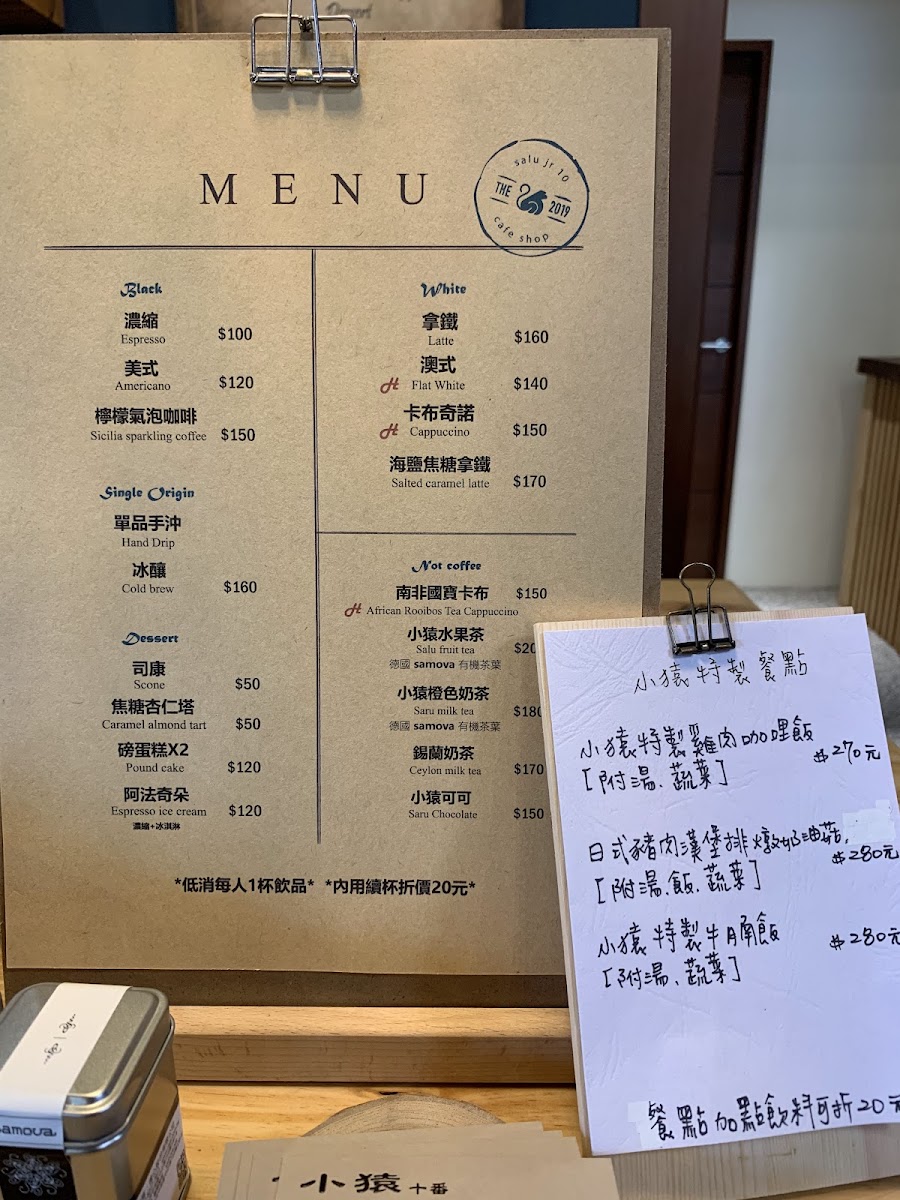 Dessert
MENU
salu jr 10
THE 2019
cafe shop
Black
濃縮
Espresso $100
美式
Americano $120
檸檬氣泡咖啡
Sicilia sparkling coffee $150
Single Origin
單品手沖
Hand Drip
冰釀
Cold brew $160
Dessert
司康
Scone $50
焦糖杏仁塔
Caramel almond tart $50
磅蛋糕X2
Pound cake $120
阿法奇朵
Espresso ice cream $120
濃縮+冰淇淋
White
拿鐵
Latte $160
澳式
H Flat White $140
卡布奇諾
H Cappuccino $150
海鹽焦糖拿鐵
Salted caramel latte $170
Not coffee
南非國寶卡布 $150
H African Rooibos Tea Cappuccino
小猿水果茶
Salu fruit tea $20
德國 samova 有機茶葉
小猿橙色奶茶
Saru milk tea $180
德國 samova 有機茶葉
錫蘭奶茶
Ceylon milk tea $170
小猿可可
Saru Chocolate $150
*低消每人1杯飲品* *內用續杯折價20元*
小猿特製餐點
小猿特製雞肉咖哩飯 $270元
[附湯、蔬菜]
日式豬肉漢堡排燉奶油菇, $280元
[附湯、飯、蔬菜]
小猿特製牛腩飯 $280元
[附湯、蔬菜]
餐點加點飲料可折20元
samova
小猿十番